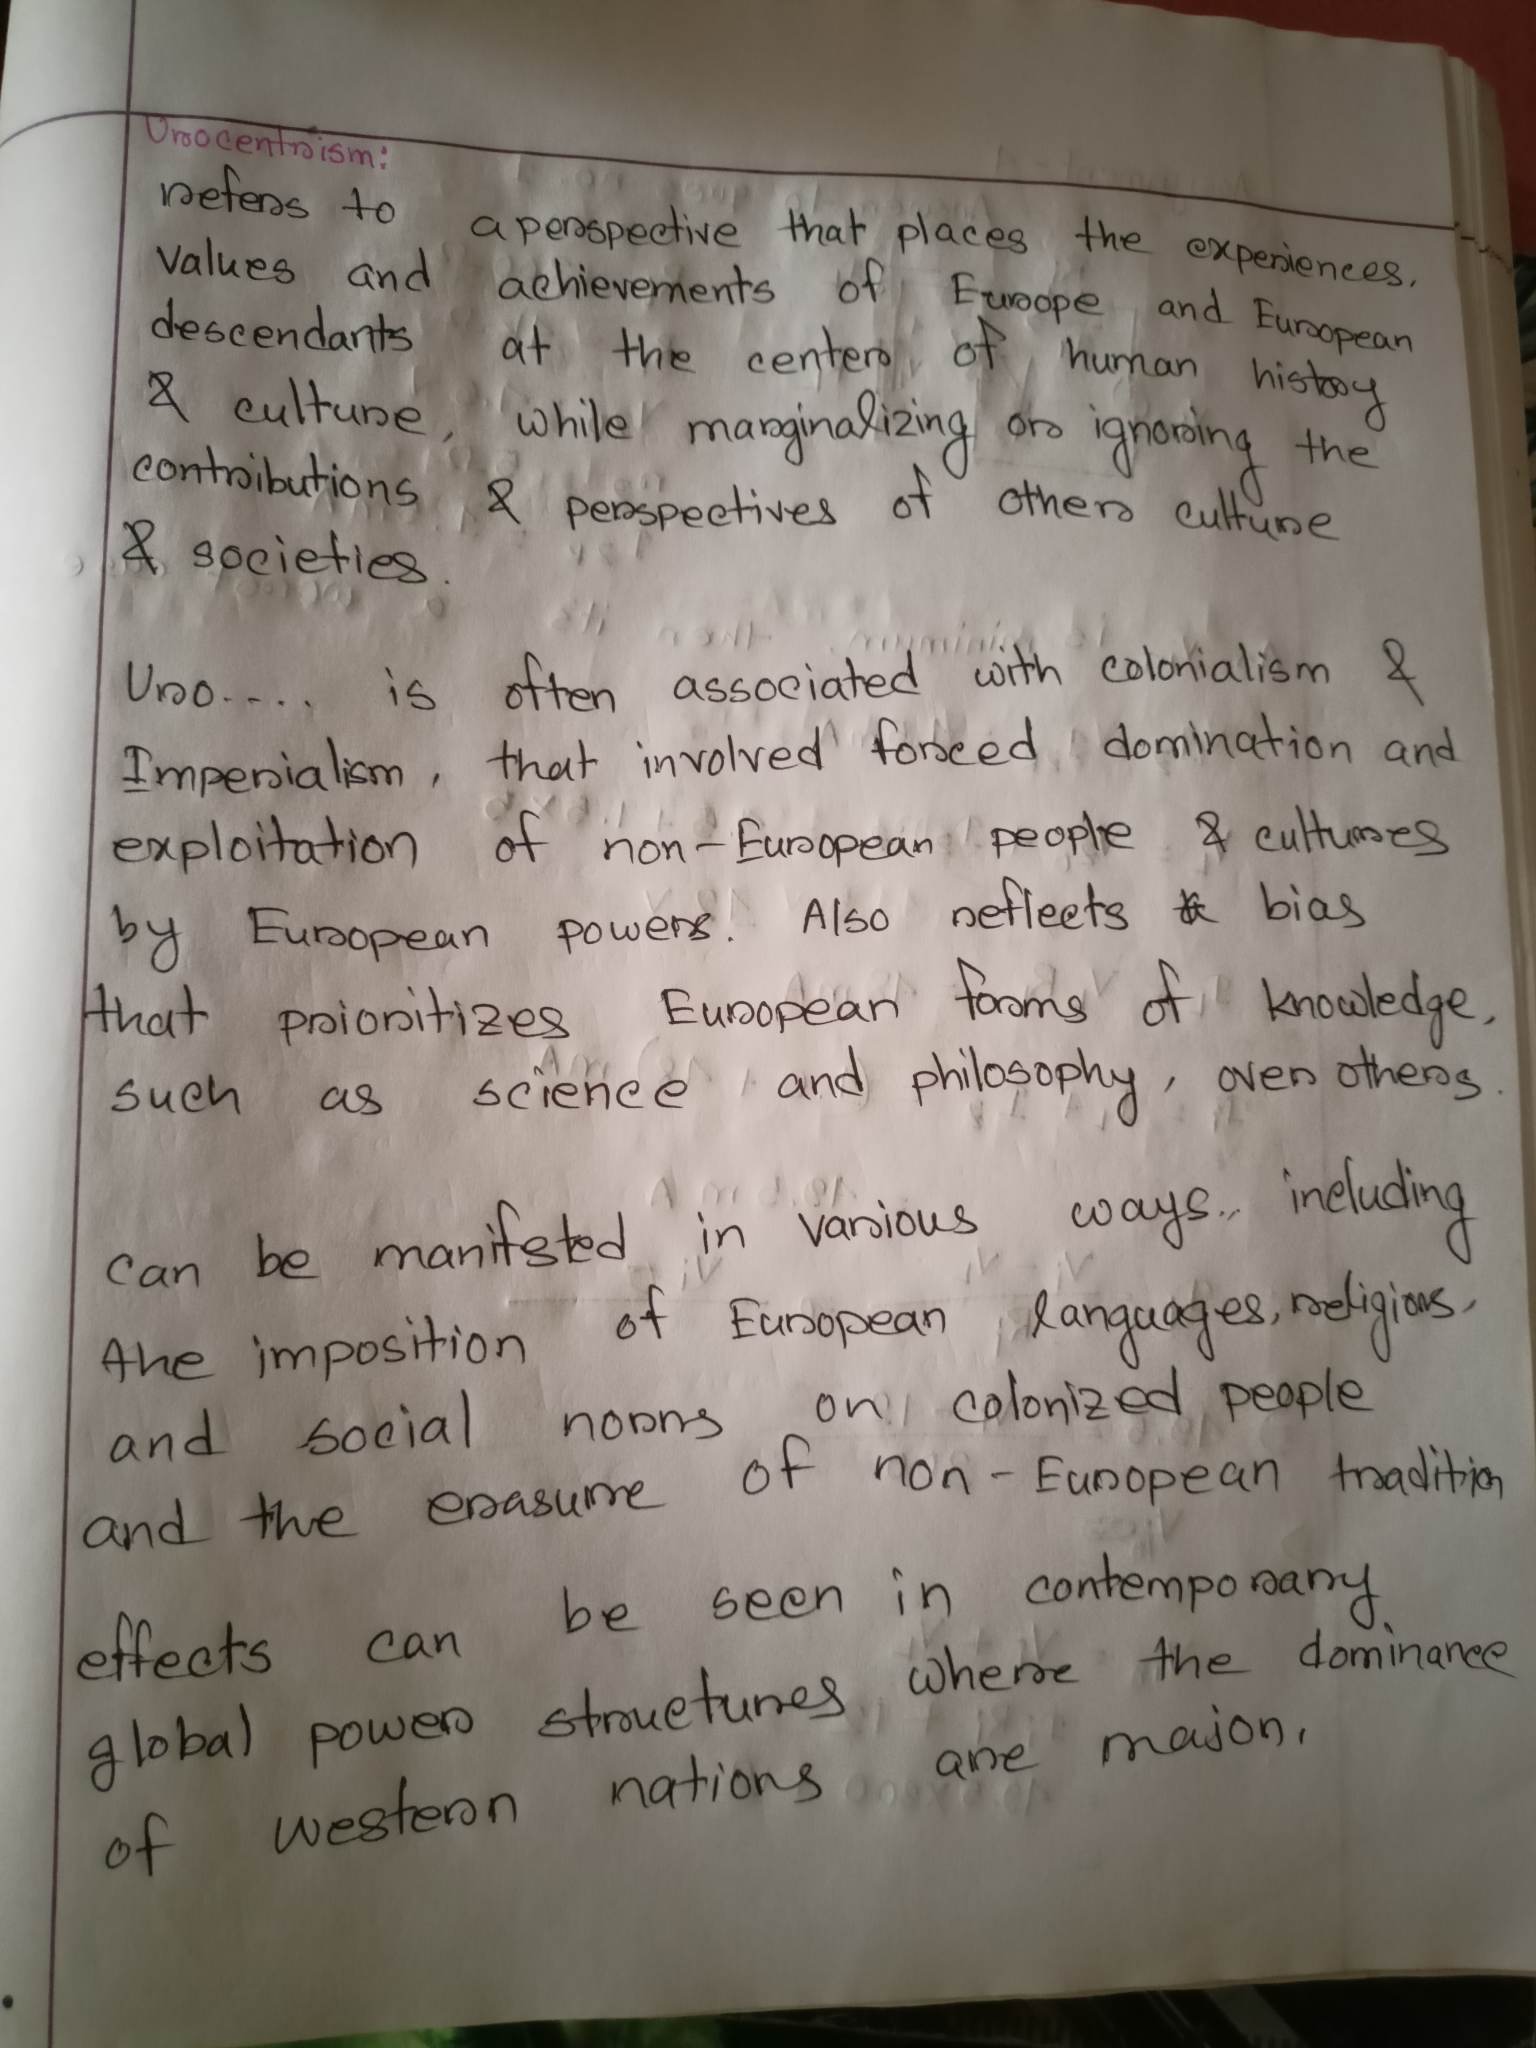 Urocentrism:
refers to a perspective that places the experiences,
values and achievements of Europe and European
descendants at the center of human history
& culture, while marginalizing or ignoring the
contributions & perspectives of other culture
& societies.
Uro.... is often associated with colonialism &
Imperialism, that involved forced domination and
exploitation of non-European people & cultures
by European powers. Also reflects bias
that prioritizes European forms of knowledge,
such as science and philosophy, over others.
can be manifsted in various ways, including
the imposition of European languages, religions,
and social norms on colonized people
and the erasure of non-European tradition
effects can be seen in contemporary
global power structures where the dominance
of western nations are major.